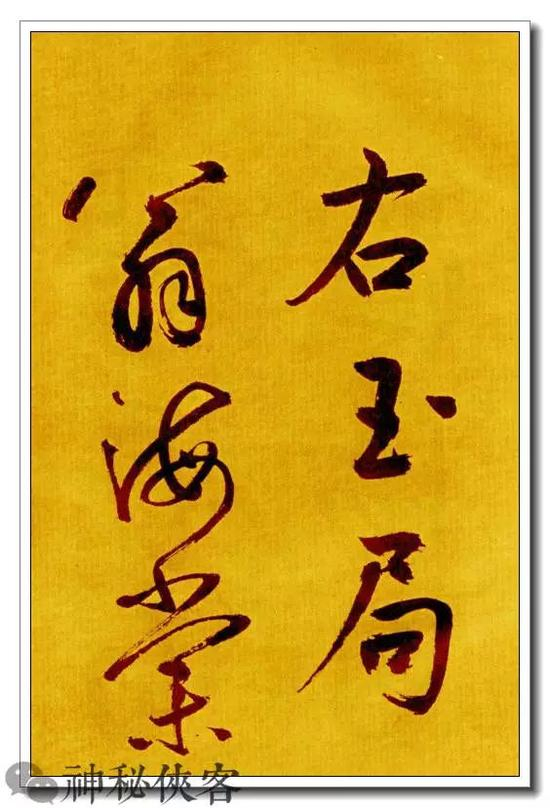 右玉局
翁海棠
神秘俠客